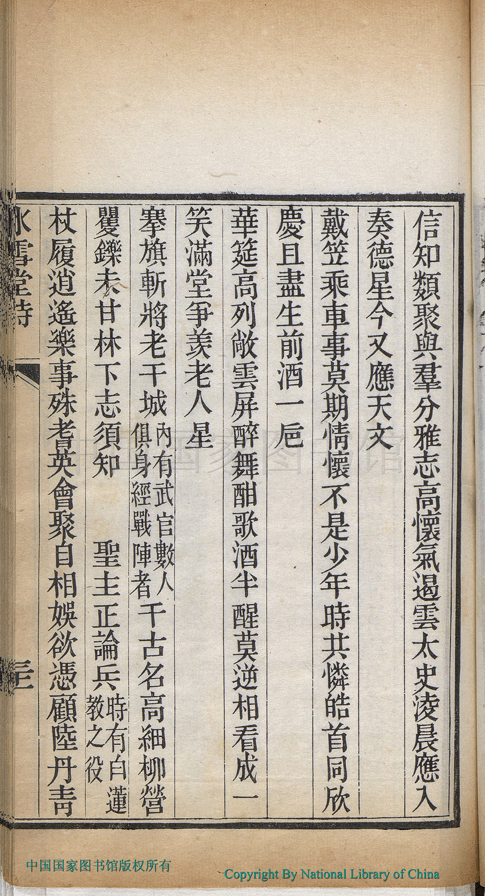 信知類聚與羣分雅志高懷氣遏雲太史淩晨應入
奏德星今又應天文
戴笠乘車事莫期情懷不是少年時共憐皓首同欣
慶且盡生前酒一巵
華筵高列敞雲屏醉舞酣歌酒半醒莫逆相看成一
笑滿堂爭羨老人星
搴旗斬將老干城內有武官數人俱身經戰陣者千古名高細柳營
矍鑠未甘林下志須知 聖主正論兵時有白蓮教之役
杖履逍遙樂事殊耆英會聚自相娛欲憑顧陸丹青
冰雪堂詩 三
中国国家图书馆
中国国家图书馆版权所有
Copyright By National Library of China